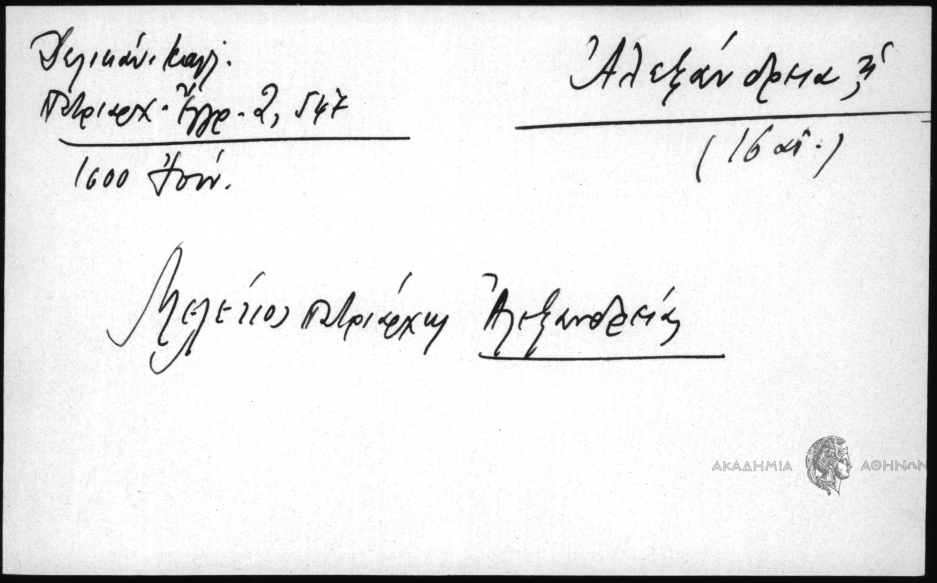 Δελικάνι Καλλ.
Πατριαρχ. Ἔγγρ. 2, 547
1600 Ἰουν.
Ἀλεξάνδρεια, ἡ
(16 αἰ.)
Μελέτιος Πατριάρχης Ἀλεξανδρείας
ΑΚΑΔΗΜΙΑ ΑΘΗΝΩΝ